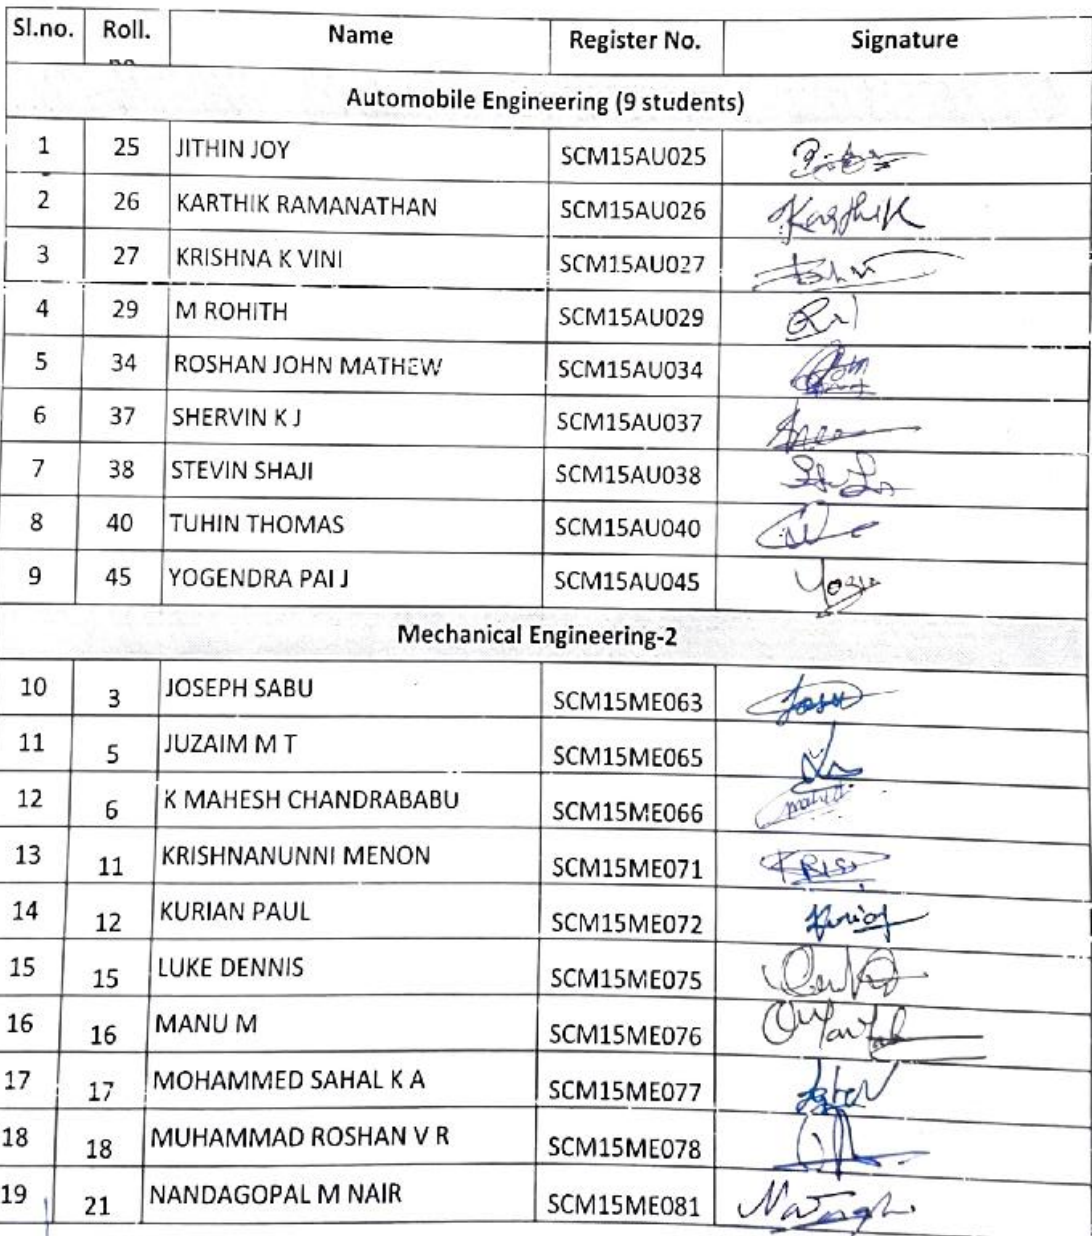 Sl.no. Roll. no Name Register No. Signature
Automobile Engineering (9 students)
1 25 JITHIN JOY SCM15AU025
2 26 KARTHIK RAMANATHAN SCM15AU026 Karthik
3 27 KRISHNA K VINI SCM15AU027
4 29 M ROHITH SCM15AU029
5 34 ROSHAN JOHN MATHEW SCM15AU034
6 37 SHERVIN K J SCM15AU037
7 38 STEVIN SHAJI SCM15AU038
8 40 TUHIN THOMAS SCM15AU040
9 45 YOGENDRA PAI J SCM15AU045
Mechanical Engineering-2
10 3 JOSEPH SABU SCM15ME063
11 5 JUZAIM M T SCM15ME065
12 6 K MAHESH CHANDRABABU SCM15ME066
13 11 KRISHNANUNNI MENON SCM15ME071
14 12 KURIAN PAUL SCM15ME072
15 15 LUKE DENNIS SCM15ME075
16 16 MANU M SCM15ME076
17 17 MOHAMMED SAHAL K A SCM15ME077
18 18 MUHAMMAD ROSHAN V R SCM15ME078
19 21 NANDAGOPAL M NAIR SCM15ME081